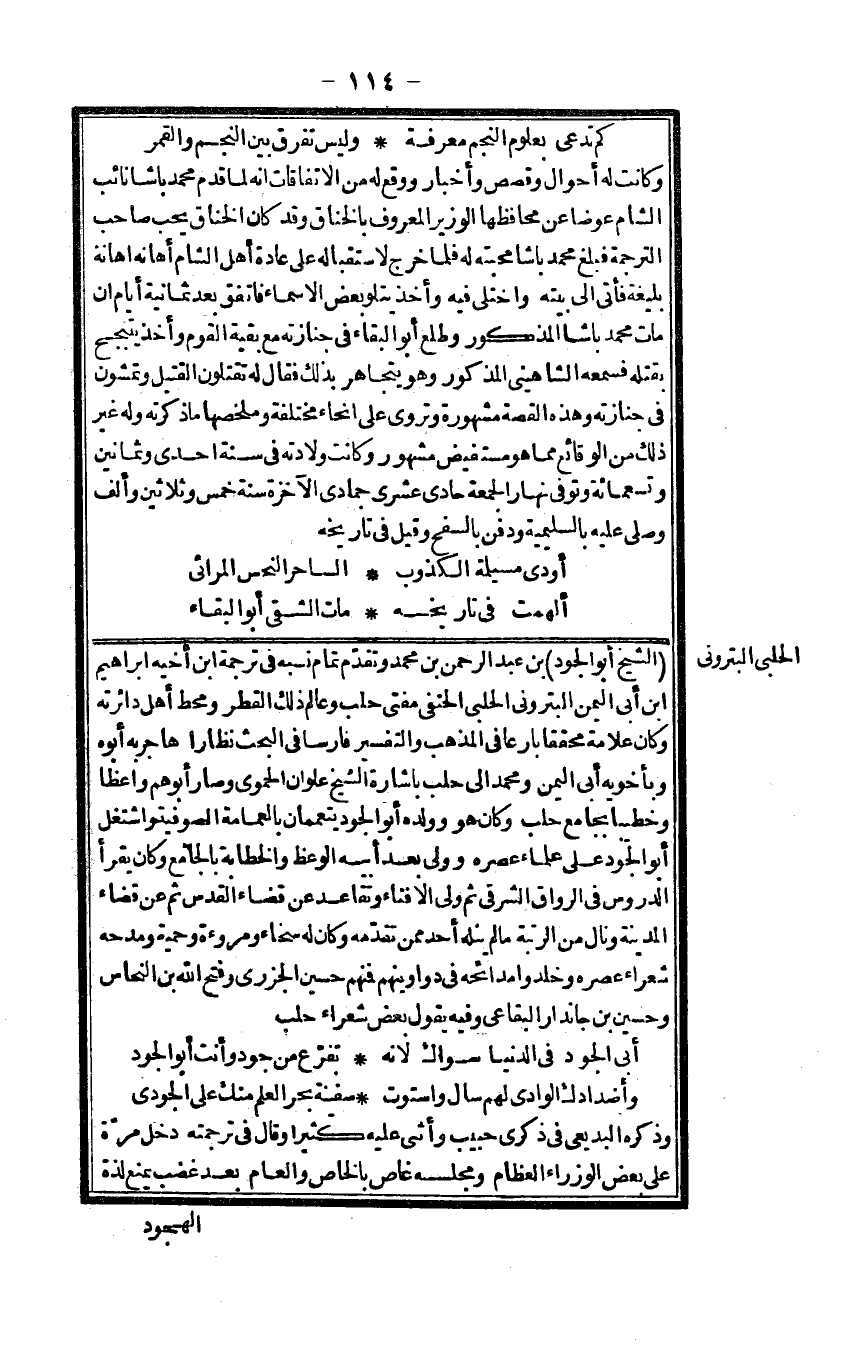 - ١١٤ -
كم تدعى بعلوم النجم معرفة * وليس تفرق بين النجم والقمر
وكانت له أحوال وقصص وأخبار ووقع له من الاتفاقات انه لما قدم محمد باشا نائب
الشام عوضا عن محافظها الوزير المعروف بالخناق وقد كان الخناق يحب صاحب
الترجمة فبلغ محمد باشا محبته له فلما خرج لاستقباله على عادة أهل الشام أهانه اهانة
بليغة فأتى الى بيته واختلى فيه وأخذ يتلو بعض الاسماء فاتفق بعد ثمانية أيام ان
مات محمد باشا المذكور وطلع أبو البقاء فى جنازته مع بقية القوم وأخذ يتبجح
بقتله فسمعه الشاهينى المذكور وهو يتجاهر بذلك فقال له تقتلون القتيل وتمشون
فى جنازته وهذه القصة مشهورة وتروى على انحاء مختلفة وملخصها ما ذكرته وله غير
ذلك من الوقائع مما هو مستفيض مشهور وكانت ولادته فى سنة احدى وثمانين
وتسعمائة وتوفى نهار الجمعة حادى عشرى جمادى الآخرة سنة خمس وثلاثين وألف
وصلى عليه بالسليمية ودفن بالسفح وقيل فى تاريخه
أودى مسيلة الكذوب * الساحر النحس المرائى
ألهمت فى تاريخه * مات الشقى أبو البقاء
الحلبى البترونى
(الشيخ أبو الجود) بن عبد الرحمن بن محمد وتقدّم تمام نسبه فى ترجمة ابن أخيه ابراهيم
ابن أبى اليمن البترونى الحلبى الحنفى مفتى حلب وعالم ذلك القطر ومحط أهل دائرته
وكان علامة محققا بارعا فى المذهب والتفسير فارسا فى البحث نظارا هاجر به أبوه
وبأخويه أبى اليمن ومحمد الى حلب باشارة الشيخ علوان الحموى وصار أبوهم واعظا
وخطيبا بجامع حلب وكان هو وولده أبو الجود يتعممان بالعمامة الصوفية واشتغل
أبو الجود على علماء عصره وولى بعد أبيه الوعظ والخطابة بالجامع وكان يقرأ
الدروس فى الرواق الشرقى ثم ولى الافتاء وتقاعد عن قضاء القدس ثم عن قضاء
المدينة ونال من الرتبة مالم ينله أحد ممن تقدّمه وكان له سخاء ومروءة وحمية ومدحه
شعراء عصره وخلدوا مدائحه فى دواوينهم فمنهم حسين الجزرى وفتح الله بن النحاس
وحسين بن جاندار البقاعى وفيه يقول بعض شعراء حلب
أبى الجود فى الدنيا سواك لانه * تفرّع من جود وأنت أبو الجود
وأضدادك الوادى لهم سال واستوت * سفينة بحر العلم منك على الجودى
وذكره البديعى فى ذكرى حبيب وأثنى عليه كثيرا وقال فى ترجمته دخل مرّة
على بعض الوزراء العظام ومجلسه غاص بالخاص والعام بعد غضب يمنع لذة
الهجود